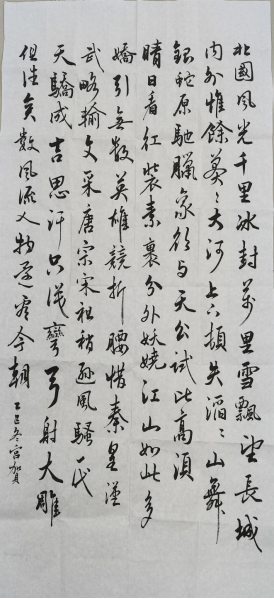 北國風光千里冰封萬里雪飄望長城
内外惟餘莽々大河上下頓失滔々山舞
銀蛇原馳臘象欲与天公試比高須
晴日看红裝素裹分外妖嬈江山如此多
嬌引無數英雄競折腰惜秦皇漢
武略輸文采唐宗宋祖稍遜風騷一代
天驕成吉思汗只識彎弓射大雕
俱往矣數風流人物還看今朝 乙巳冬宫賀